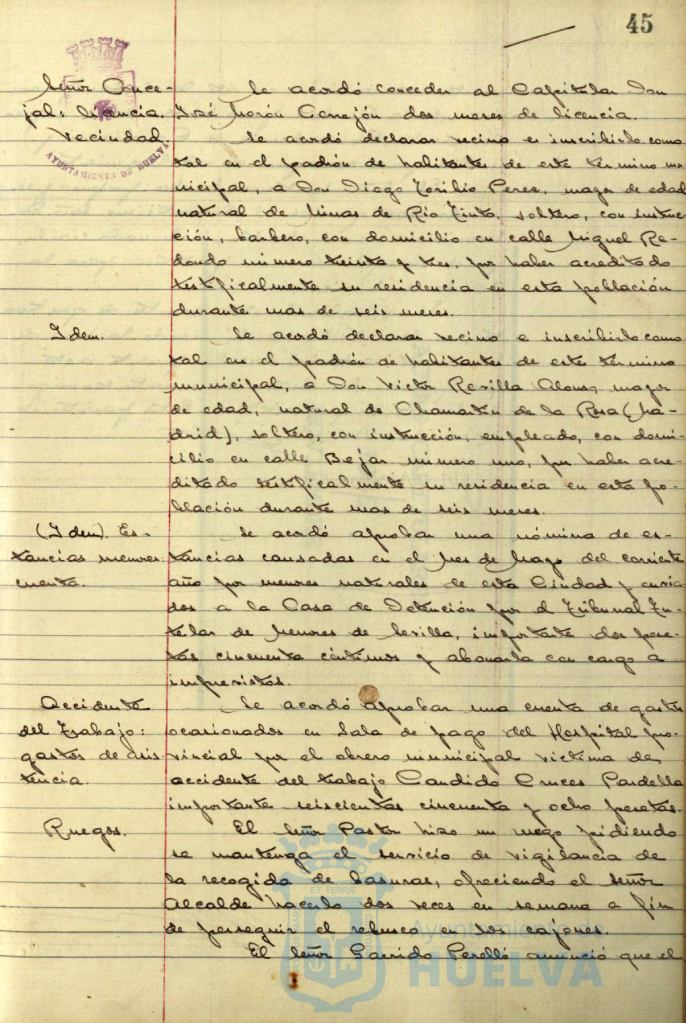 45
Señor Conce-
jal: licencia.
Se acordó conceder al Capitular Don
José Morón Cerrejón dos meses de licencia.
Vecindad.
AYUNTAMIENTO DE HUELVA
Se acordó declarar vecino e inscribirlo como
tal en el padrón de habitantes de este término mu-
nicipal, a Don Diego Toribio Perez, mayor de edad
natural de Minas de Río Tinto, soltero, con instruc-
ción, barbero, con domicilio en calle Miguel Re-
dondo número treinta y tres, por haber acreditado
testificalmente su residencia en esta población
durante mas de seis meses.
Idem.
Se acordó declarar vecino e inscribirlo como
tal en el padrón de habitantes de este término
municipal, a Don Victor Revilla Alonso, mayor
de edad, natural de Chamartin de la Rosa (Ma-
drid), soltero, con instrucción, empleado, con domi-
cilio en calle Bejar número uno, por haber acre-
ditado testificalmente su residencia en esta po-
blación durante mas de seis meses.
(Idem). Es-
tancias menores:
cuenta.
Se acordó aprobar una nómina de es-
tancias causadas en el mes de Mayo del corriente
año por menores naturales de esta Ciudad y envia-
dos a la Casa de Detención por el Tribunal Tu-
telar de Menores de Sevilla, importante dos pese-
tas cincuenta céntimos y abonarla con cargo a
imprevistos.
Accidente
del Trabajo:
gastos de asis
tencia.
Se acordó aprobar una cuenta de gastos
ocasionados en Sala de pago del Hospital pro-
vincial por el obrero municipal victima de
accidente del trabajo Candido Cruces Pardella
importante seiscientas cincuenta y ocho pesetas.
Ruegos.
El Señor Pastor hizo un ruego pidiendo
se mantenga el servicio de vigilancia de
la recogida de basuras, ofreciendo el señor
Alcalde hacerlo dos veces en semana a fin
de perseguir el rebusco en los cajones.
El Señor Garrido Perelló anunció que el
ET TERRÆ
Ayuntamiento
HUELVA